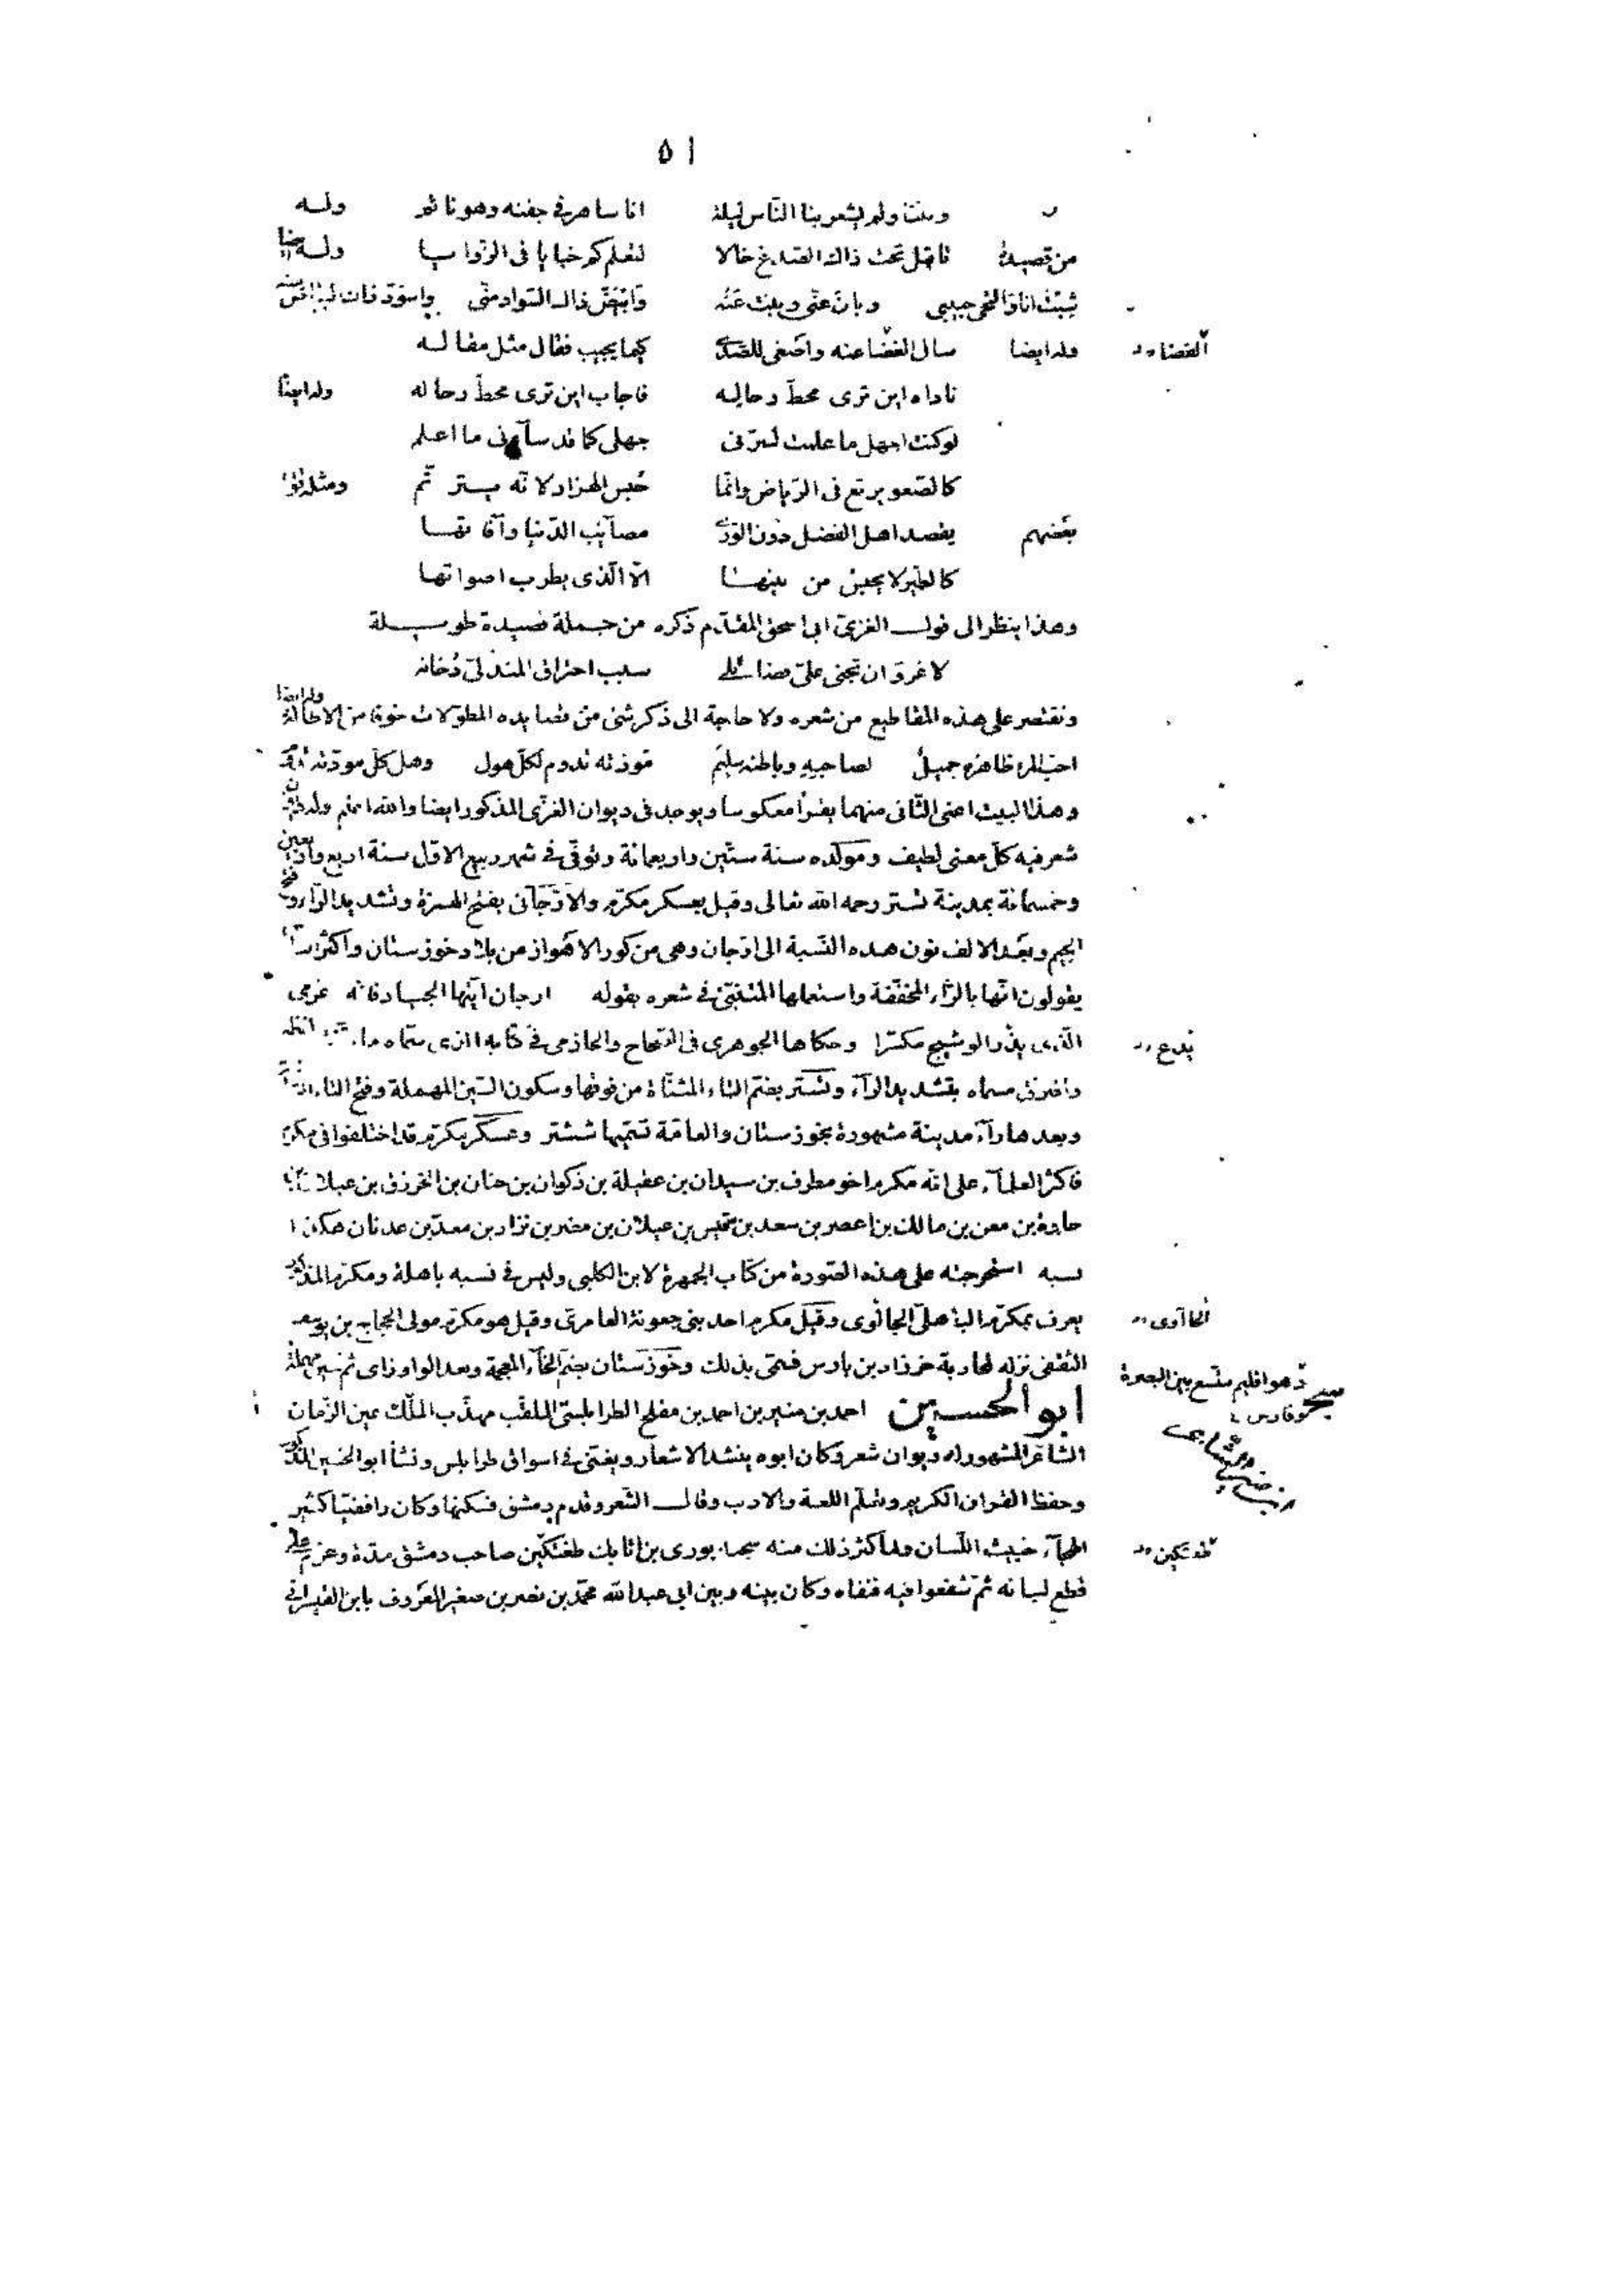 ٥١
وبتنا ولم يشعر بنا الناس ليلة انا ساهر في جفنه وهو نائم وله
من قصيدة تأمل تحت ذاك الصدغ خالا لتعلم كم خبايا في الزوايا وله ايضا
شبت انا والتحى حبيبي وبان عنّي وبنت عنه وابيضّ ذاك السواد منّي واسودّ ذاك البياض منه
وله ايضا سال الفضا عنه واصغى للصدى كيما يجيب فقال مثل مقاله
الفضاء
ناداه اين ترى محطّ رحاله فاجاب اين ترى محطّ رحاله وله ايضا
لو كنت اجهل ما علمت لسرّني جهلى كما قد سآءنى ما اعلم
كالصّعو يرتع فى الرّياض وانّما حُبس الهزار لانّه يترنّم ومثله قول
بعضهم يقصد اهل الفضل دون الورى مصآئب الدّنيا وآفاتها
كالطير لا يحبس من بينها الّا الّذى يطرب اصواتها
وهذا ينظر الى قول الغزى ابى اسحق المقدّم ذكره من جملة قصيدة طويلة
لا غرو ان تجنى علىّ فضائلى سبب احتراق المندلىّ دُخانه
ونقتصر على هذه المقاطيع من شعره ولا حاجة الى ذكر شئ من قصايده المطوّلات خوفا من الاطالة وله ايضا
احبّ المرء ظاهره جميلٌ لصاحبه وباطنه سليم مودّته تدوم لكل هول وهل كل مودّته تدوم
وهذا البيت اعنى الثّانى منهما يقرأ معكوسا ويوجد فى ديوان الغزّى المذكور ايضا والله اعلم وله ديوان
شعر فيه كلّ معنى لطيف ومولده سنة ستّين واربعمائة وتوفّى في شهر ربيع الاوّل سنة اربع واربعين
وخمسمائة بمدينة تستر رحمه الله تعالى وقيل بعسكر مكرّم والارّجانى بفتح الهمزة وتشديد الرّاء وفتح
الجيم وبعد الالف نون هذه النّسبة الى ارّجان وهى من كور الاهواز من بلاد خوزستان واكثر النّاس
يقولون انّها بالرّاء المخفّفة واستعملها المتنبّى في شعره بقوله ارجان ايّتها الجياد فانّه عزمى
الّذى يذر الوشيج مكسّرا وحكاها الجوهرى فى الصّحاح والحازمى في كتابه الذى سمّاه ما اتفق لفظه
يدع
وافترق مسماه بتشديد الرآء وتُستر بضم التاء المثنّاة من فوقها وسكون السّين المهملة وفتح التاء الثانية
وبعدها رآء مدينة مشهورة بخوزستان والعامّة تسمّيها ششتر وعسكر مكرّم قد اختلفوا فى مكرّم
فاكثر العلمآء على انّه مكرم اخو مطرف بن سيدان بن عقيلة بن ذكوان بن حنان بن الخرزق بن عيلان بن
حاوة بن معن بن مالك بن اعصر بن سعد بن قيس بن عيلان بن مضر بن نزار بن معدّ بن عدنان هكذا
نسبه استخرجته على هذه الصّورة من كتاب الجمهرة لابن الكلبى وليس في نسبه باهلة ومكرّم المذكور
يعرف بمكرّم الباهلىّ الحاوى وقيل مكرم احد بنى جعونة العامرى وقيل هو مكرّم مولى الحجاج بن يوسف
الحآوى
الثّقفى نزله لمحاربة خرزاد بن بارس فسمّى بذلك وخوزستان بضم الخآء المعجمة وبعد الواو زاى ثم سين مهملة
وهو اقليم متّسع بين البصرة
وفارس
ابو الحسين احمد بن منير بن احمد بن مفلح الطرابلسىّ الملقّب مهذّب الملك عين الزّمان
الشاعر المشهور له ديوان شعر وكان ابوه ينشد الاشعار ويغنّى في اسواق طرابلس ونشأ ابو الحسين المذكور
وحفظ القران الكريم وتعلّم اللغة والادب وقال الشّعر وقدم دمشق فسكنها وكان رافضيّا كثير
الهجآء خبيث اللّسان ولما كثر ذلك منه سجنه بورى بن اتابك طغتكين صاحب دمشق مدّة وعزم على
طغتكين
قطع لسانه ثم شفعوا فيه فنفاه وكان بينه وبين ابى عبد الله محمّد بن نصر بن صغير المعروف بابن القيسرانى